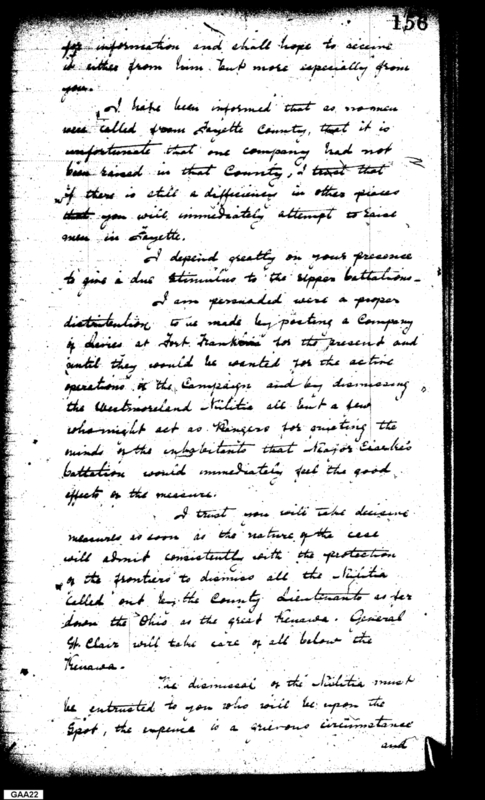 156
for information and shall hope to receive
it either from him but more especially from
you.
I have been informed that as no men
were called from Fayette County, that it is
unfortunate that one company had not
been raised in that County, I trust that
if there is still a difficiency in other places
that you will immediately attempt to raise
men in Fayette.
I depend greatly on your presence
to give a due stimulus to the upper battalions-
I am persuaded were a proper
distribution to be made by posting a Company
of Levies at Fort Franklin for the present and
until they would be wanted for the active
operations of the Campaign and by dismissing
the Westmoreland Militia all but a few
who might act as Rangers for quieting the
minds of the inhabitants that Major Clarke's
battalion would immediately feel the good
effects of the measure.
I trust you will take decisive
measures as soon as the nature of the case
will admit consistently with the protection
of the frontiers to dismiss all the Militia
called out by the County Lieutenants as far
down the Ohio as the great Kenawa. General
St Clair will take care of all below the
Kenawa.
The dismissal of the Militia must
be entrusted to you who will be upon the
Spot, the expense is a grievous circumstance
and
GAA22